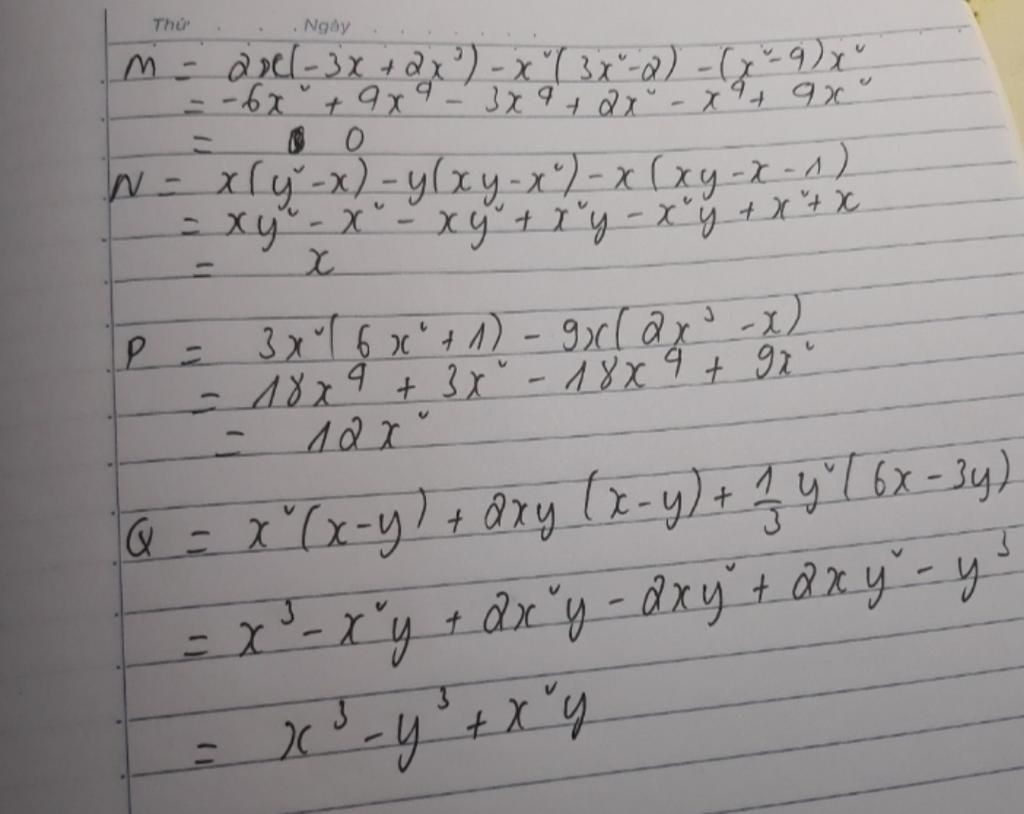 Thứ . . . Ngày . . . . . . .
M = 2x(-3x + 2x³) - x²(3x² - 2) - (x² - 4)x²
= -6x² + 4x⁴ - 3x⁴ + 2x² - x⁴ + 4x²
= 0
N = x(y² - x) - y(xy - x²) - x(xy - x - 1)
= xy² - x² - xy² + x²y - x²y + x² + x
= x
P = 3x²(6x² + 1) - 9x(2x³ - x)
= 18x⁴ + 3x² - 18x⁴ + 9x²
= 12x²
Q = x²(x - y) + 2xy(x - y) + 1/3 y²(6x - 3y)
= x³ - x²y + 2x²y - 2xy² + 2xy² - y³
= x³ - y³ + x²y